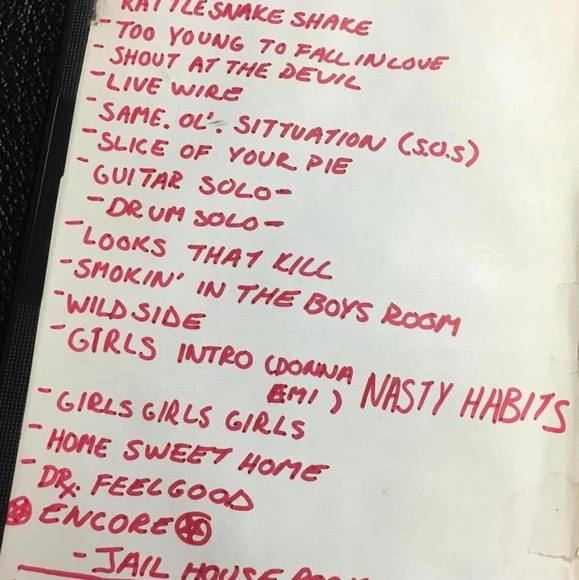 RATTLESNAKE SHAKE
- TOO YOUNG TO FALL IN LOVE
- SHOUT AT THE DEVIL
- LIVE WIRE
- SAME. OL'. SITTUATION (S.O.S)
- SLICE OF YOUR PIE
- GUITAR SOLO -
- DRUM SOLO -
- LOOKS THAT KILL
- SMOKIN' IN THE BOYS ROOM
- WILDSIDE
- GIRLS INTRO (DONNA
EMI) NASTY HABITS
- GIRLS GIRLS GIRLS
- HOME SWEET HOME
- DR. FEELGOOD
ENCORE
- JAIL HOUSE